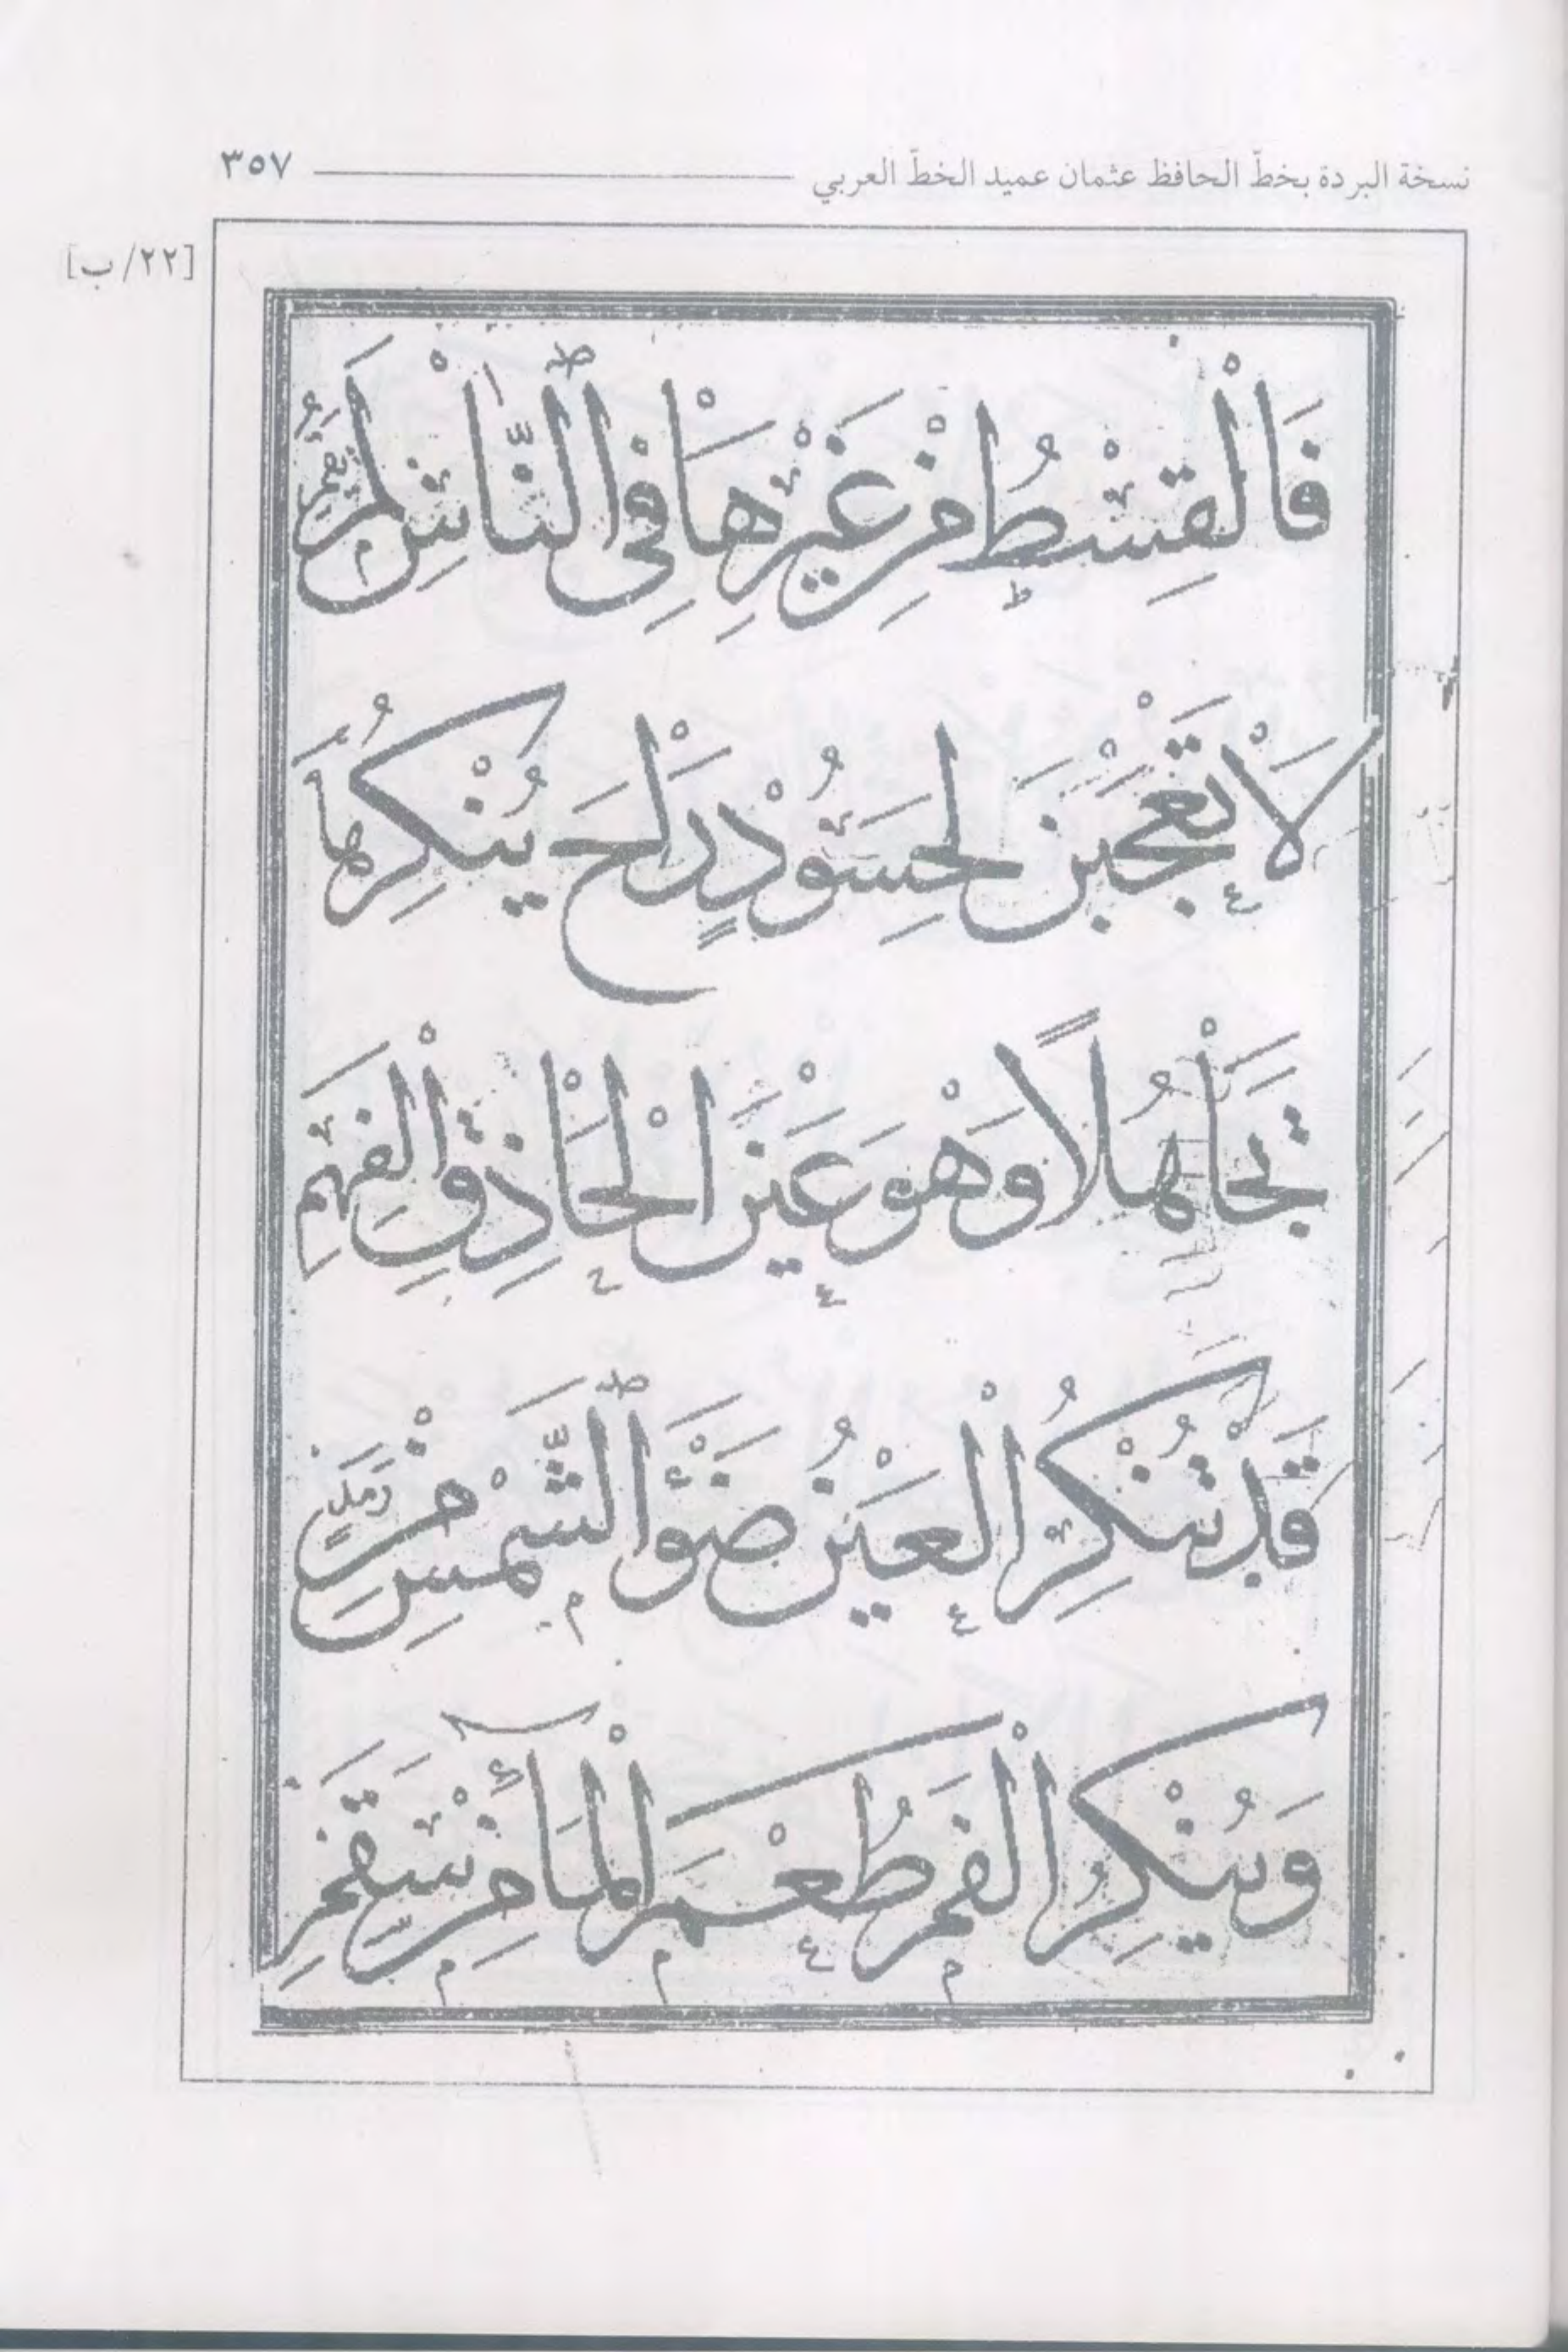 نسخة البردة بخطّ الحافظ عثمان عميد الخطّ العربي ٣٥٧
[٢٢/ب]
فَالْقِسْطُ مِنْ غَيْرِهَا فِي النَّاسِ لَمْ يَقُمِ
لَا تَعْجَبَنْ لِحَسُودٍ رَاحَ يُنْكِرُهَا
تَجَاهُلًا وَهْوَ عَيْنُ الْحَاذِقِ الْفَهِمِ
قَدْ تُنْكِرُ الْعَيْنُ ضَوْءَ الشَّمْسِ مِنْ رَمَدٍ
وَيُنْكِرُ الْفَمُ طَعْمَ الْمَآءِ مِنْ سَقَمِ